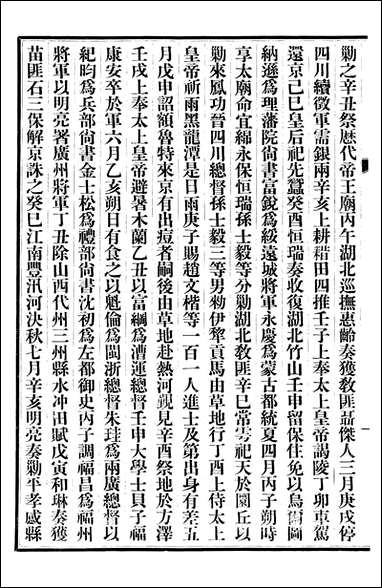 勦之辛丑祭歴代帝王廟丙午湖北巡撫惠齡奏獲敎匪聶傑人三月庚戌停
四川續徵軍需銀兩辛亥上耕耤田四推壬子上奉太上皇帝謁陵丁卯車駕
還京己巳皇后祀先蠶癸酉恒瑞奏收復湖北竹山壬申留保住免以烏爾圖
納遜爲理藩院尙書富銳爲綏遠城將軍永慶爲蒙古都統夏四月丙子朔時
享太廟命宜綿永保恒瑞孫士毅等分勦湖北敎匪辛巳常雩祀天於圜丘以
勦來鳳功晉四川總督孫士毅三等男勑伊犂貢馬由草地行丁酉上侍太上
皇帝祈雨黑龍潭是日雨庚子賜趙文楷等一百一人進士及第出身有差五
月戊申詔額魯特來京有出痘者嗣後由草地赴熱河覲見辛酉祭地於方澤
壬戌上奉太上皇帝避暑木蘭乙丑以富綱爲漕運總督壬申大學士貝子福
康安卒於軍六月乙亥朔日有食之以魁倫爲閩浙總督朱珪爲兩廣總督以
紀昀爲兵部尙書金士松爲禮部尙書沈初爲左都御史丙子調福昌爲福州
將軍以明亮署廣州將軍丁丑除山西代州三州縣水沖田賦戊寅和琳奏獲
苗匪石三保解京誅之癸巳江南豐汛河決秋七月辛亥明亮奏勦平孝感縣